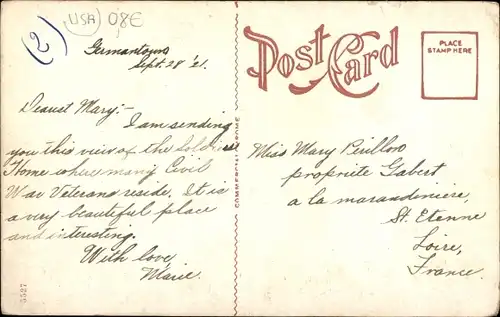 USA 08E
2
Germantown
Sept. 28 '21.
Dearest Mary:-
I am sending
you this view of the Soldiers
Home where many Civil
War Veterans reside. It is
a very beautiful place
and interesting.
With love,
Marie.
3527
POST CARD
PLACE
STAMP HERE
Miss Mary Perillon
propriete Gabert
a la marandiniere,
St. Etenne
Loire,
France.